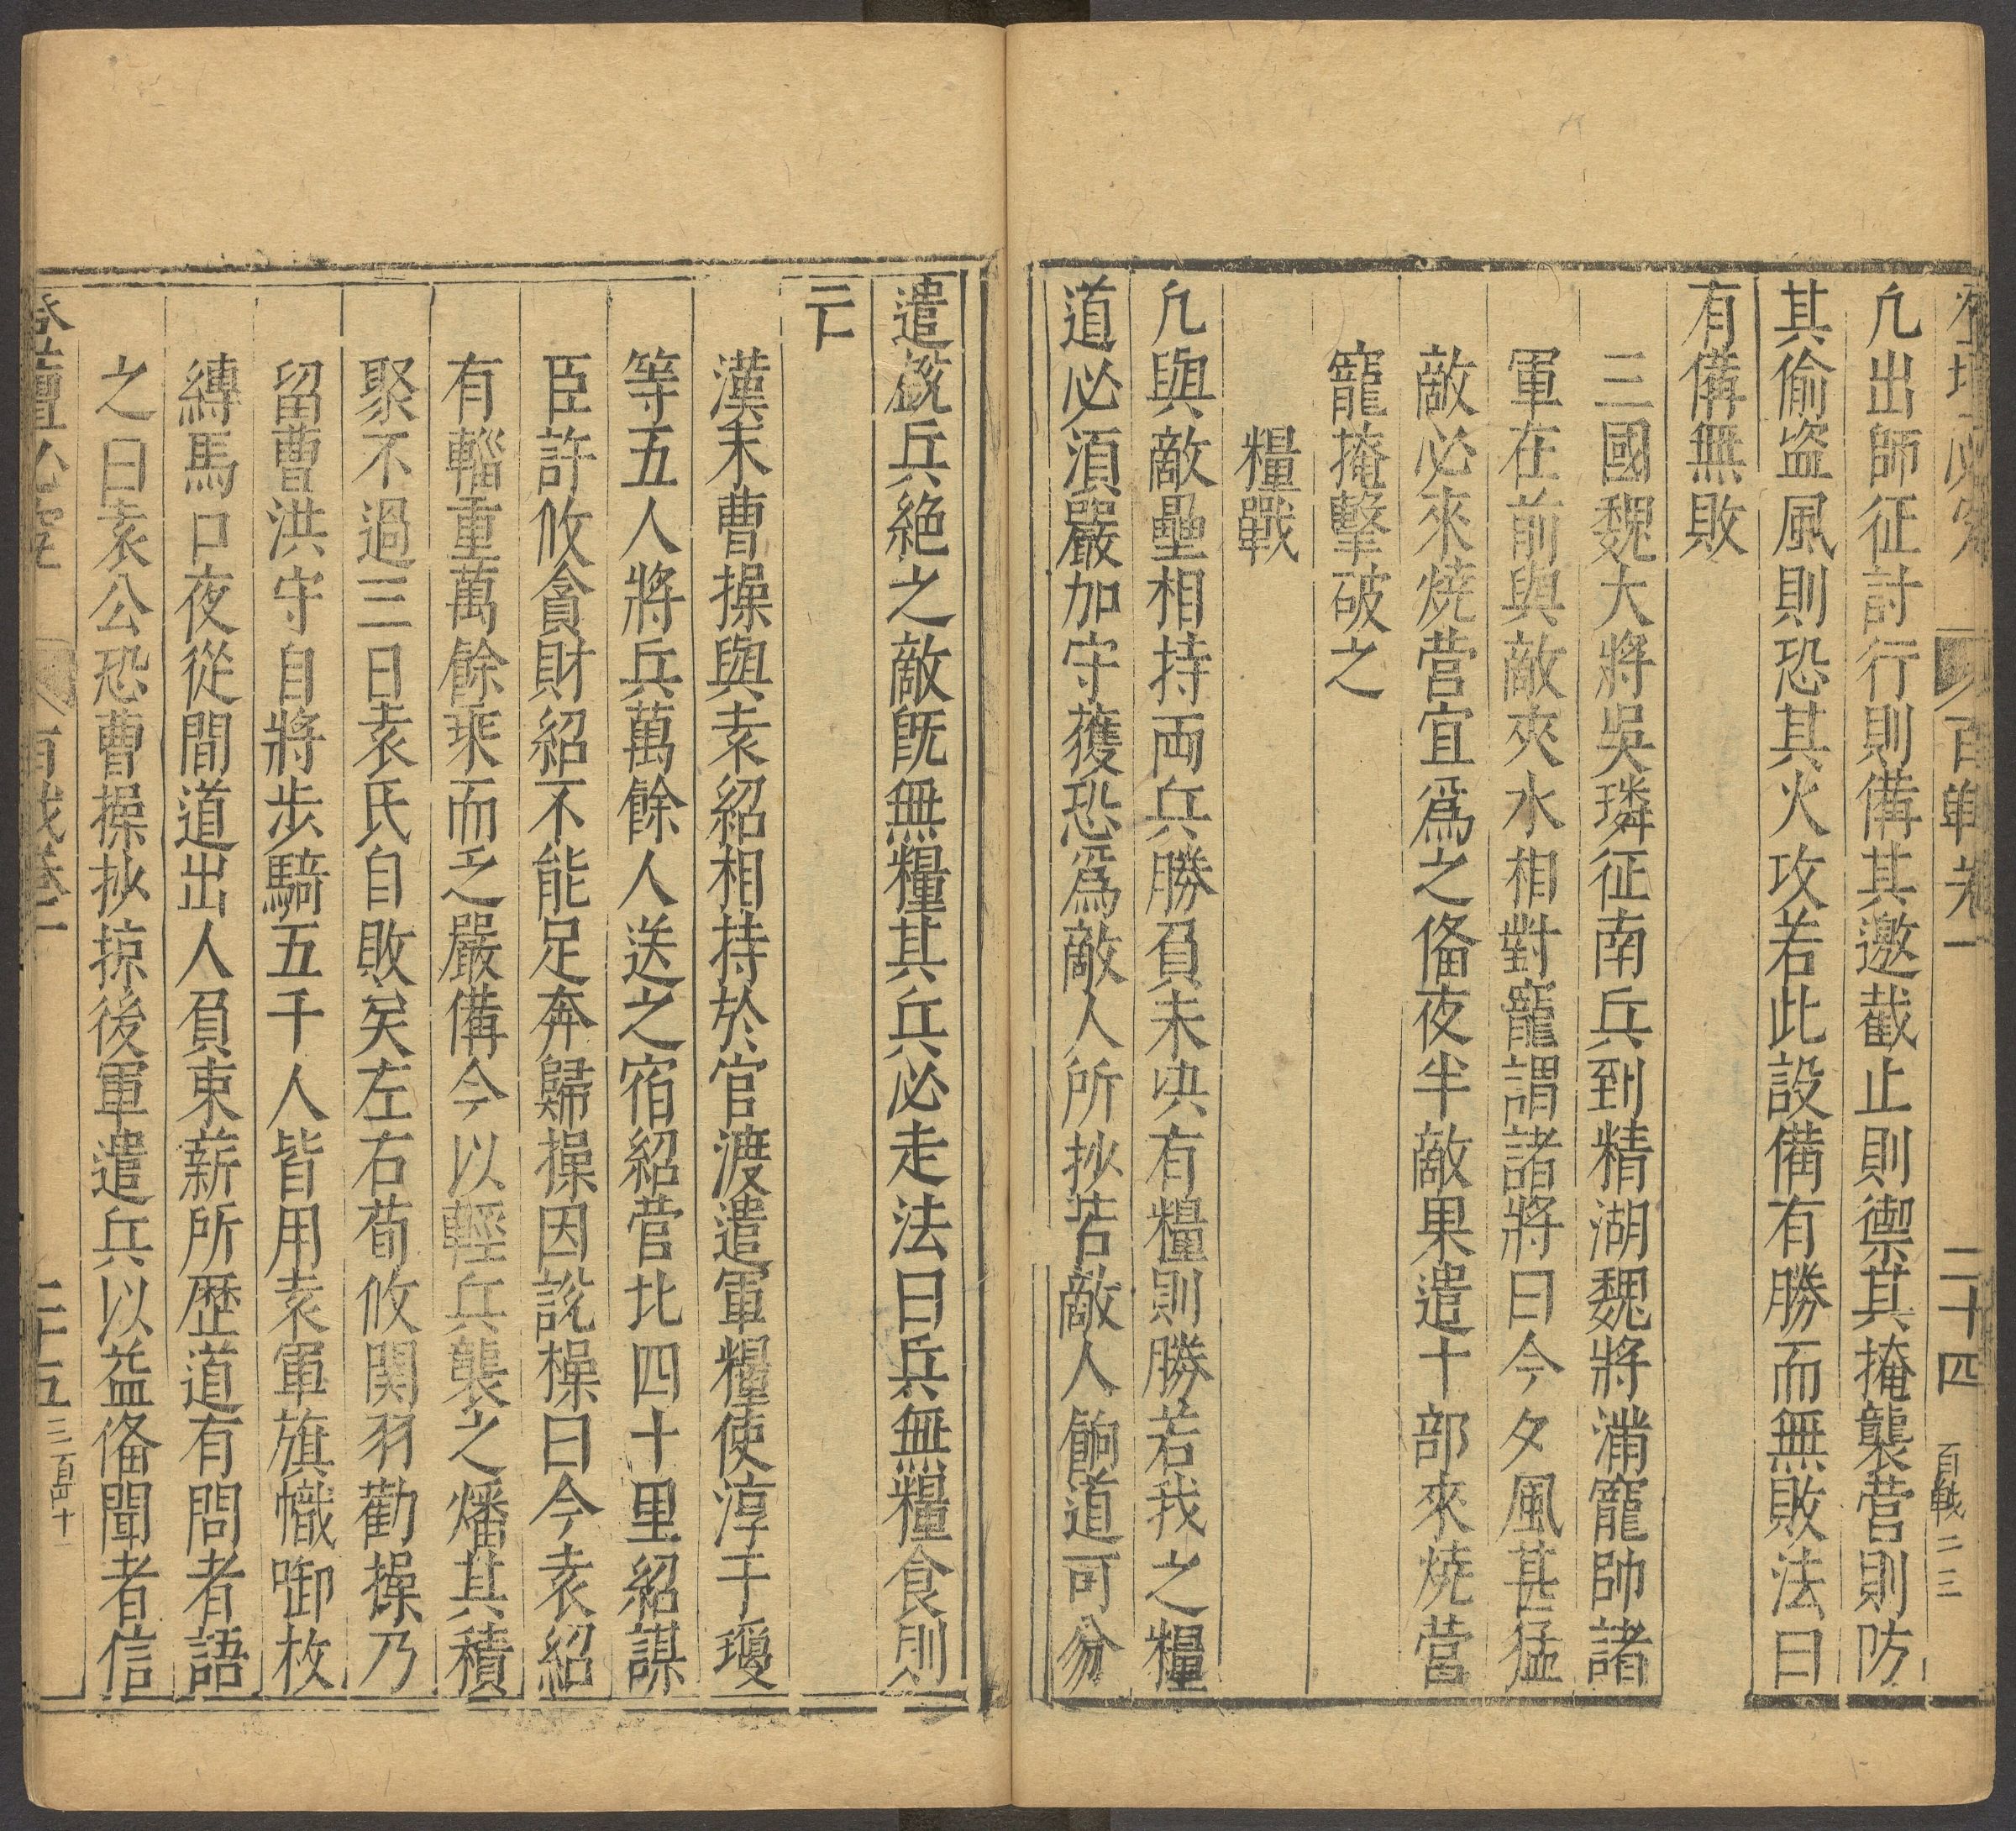 登壇必究 百戰卷一 二十四 百戰二三
凢出師征討行則備其邀截止則禦其掩襲营則防
其偷盗風則恐其火攻若此設備有勝而無敗法曰
有備無敗
三國魏大將吳璘征南兵到精湖魏將滿寵帥諸
軍在前與敵夾水相對寵謂諸將曰今夕風甚猛
敵必來燒营宜爲之俻夜半敵果遣十部來燒营
寵掩擊破之
糧戰
凢與敵壘相持両兵勝負未决有糧則勝若我之糧
道必湏嚴加守獲恐爲敵人所抄若敵人餉道可分
遣銳兵絶之敵旣無糧其兵必走法曰兵無糧食則
亡
漢末曹操與袁紹相持於官渡遣軍糧使淳于瓊
等五人將兵萬餘人送之宿紹营北四十里紹謀
臣許攸貪財紹不能足奔歸操因説操曰今袁紹
有輜重萬餘乘而乏嚴備今以輕兵襲之燔其積
聚不過三日袁氏自敗矣左右荀攸関羽勸操乃
留曹洪守自將步騎五千人皆用袁軍旗幟啣枚
縛馬口夜從間道出人負束薪所歴道有問者語
之曰袁公恐曹操抄掠後軍遣兵以益俻聞者信
登壇必究 百戰卷一 二十五 三百四十一